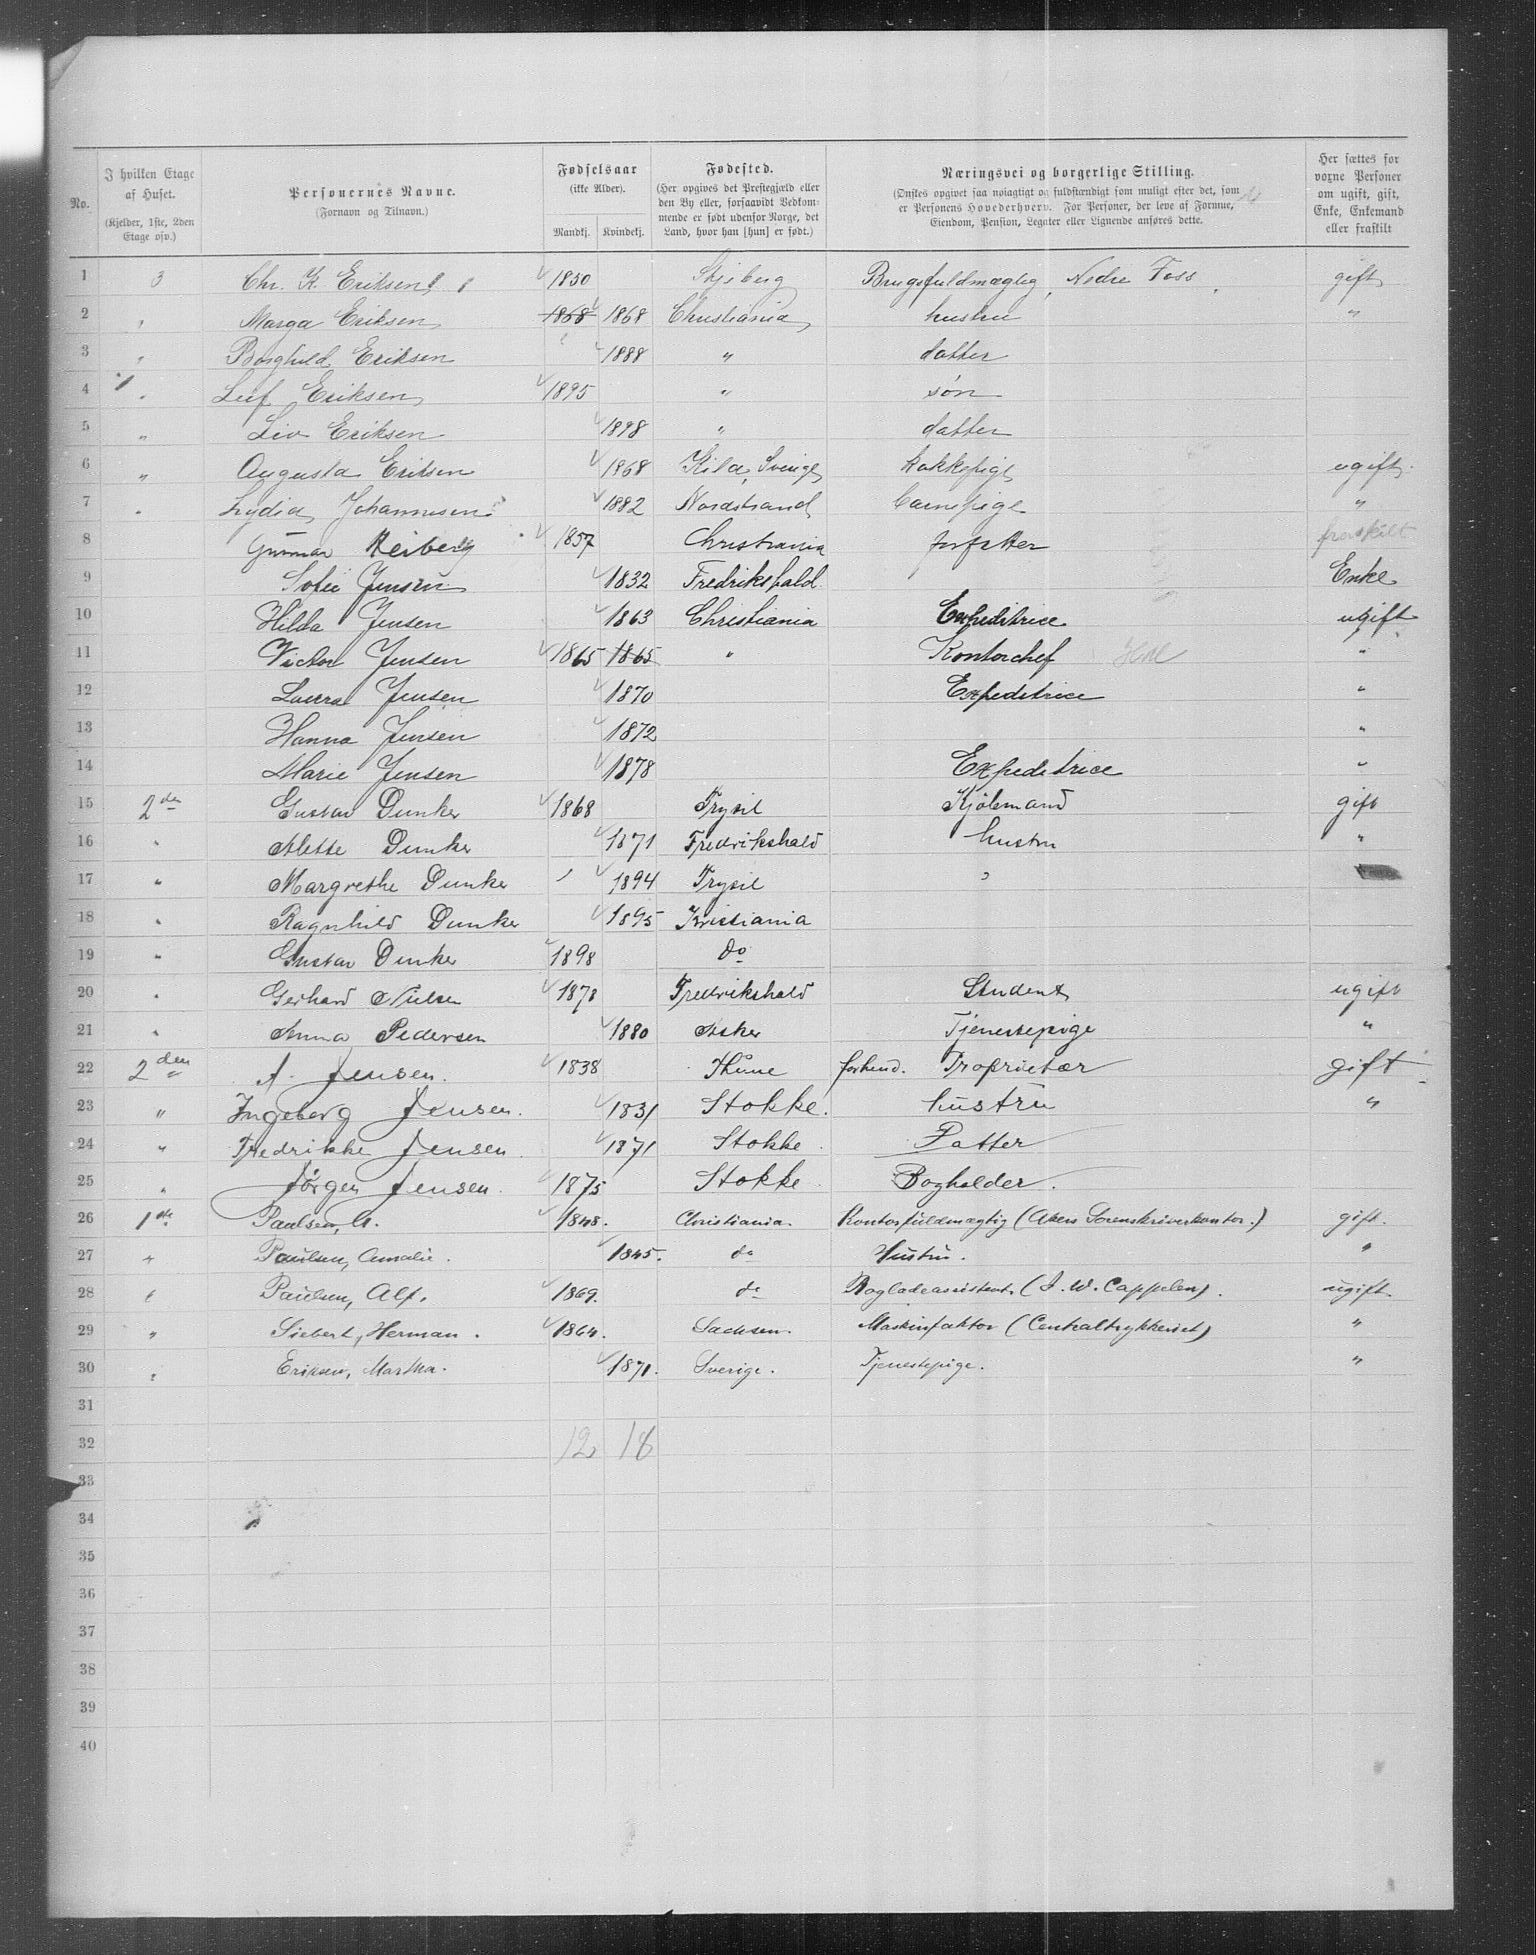 No. | I hvilken Etage af Huset. (Kjelder, 1ste, 2den Etage osv.) | Personernes Navne. (Fornavn og Tilnavn.) | Fødselsaar (ikke Alder). Mandkj. | Kvindekj. | Fødested. (Her opgives det Prestegjæld eller den By eller, forsaavidt Vedkommende er født udenfor Norge, det Land, hvor han [hun] er født.) | Næringsvei og borgerlige Stilling. (Ønskes opgivet saa nøiagtigt og fuldstændigt som muligt efter det, som er Personens Hovederhverv. For Personer, der leve af Formue, Eiendom, Pension, Legater eller Lignende anføres dette. | Her sættes for voxne Personer om ugift, gift, Enke, Enkemand eller fraskilt
1 3 Chr. K. Eriksen 1850 Skjeberg Brugsfuldmægtig, Nedre Foss gift
2 " Marga Eriksen 1868 1868 Christiania hustru "
3 " Borghild Eriksen 1888 " datter
4 " Leif Eriksen 1895 " søn
5 " Liv Eriksen 1898 " datter
6 " Augusta Eriksen 1868 Kila, Sverige kokkepige ugift
7 " Lydia Johannesen 1882 Nordstrand barnepige "
8 Gunnar Heiberg 1857 Christiania forfatter fraskilt
9 Sofie Jensen 1832 Fredrikshald Enke
10 Hilda Jensen 1863 Christiania Expeditrice ugift
11 Victor Jensen 1865 1865 " Kontorchef "
12 Laura Jensen 1870 Expeditrice "
13 Hanna Jensen 1872 "
14 Marie Jensen 1878 Expeditrice "
15 2den Gustav Dunker 1868 Trysil Kjøbmand gift
16 " Mette Dunker 1871 Fredrikshald hustru "
17 " Margrethe Dunker 1894 Trysil "
18 " Ragnhild Dunker 1895 Kristiania
19 " Gustav Dunker 1898 do
20 " Gerhard Nielsen 1878 Fredrikshald Student ugift
21 " Anna Pedersen 1880 Asker Tjenestepige "
22 2den A. Jensen. 1838 Thune forhend. Proprietær gift
23 " Ingeborg Jensen. 1831 Stokke. hustru "
24 " Fredrikke Jensen. 1871 Stokke. Datter
25 " Jørgen Jensen. 1875 Stokke. Bogholder.
26 1ste Paulsen, A. 1848. Christiania. Kontorfuldmægtig (Akers Sorenskriverkontor.) gift.
27 " Paulsen, Amalie. 1845. do Hustru. "
28 " Paulsen, Alf. 1869. do Bogladeassistent (J. W. Cappelen). ugift.
29 " Siebert, Herman. 1864. Sachsen. Maskinfaktor (Centraltrykkeriet) "
30 " Eriksen, Martha. 1871. Sverige. Tjenestepige. "
31
32 12 18
33
34
35
36
37
38
39
40